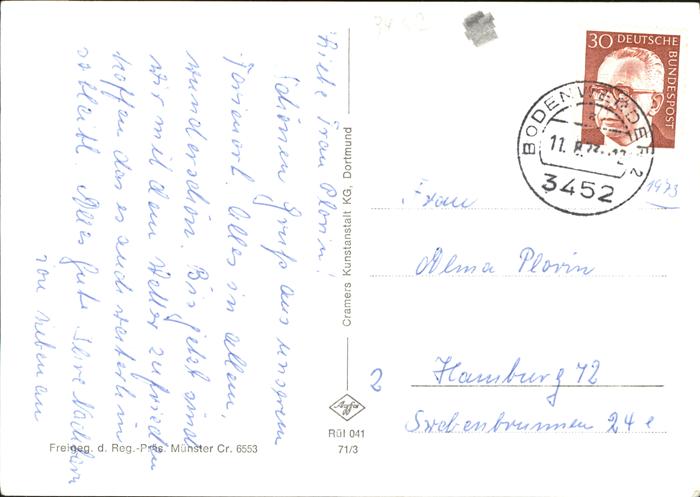 Liebe Frau Plorin!
Schönen Gruß aus unserem
Ferienort. Alles in allem,
wunderschön. Bis jetzt sind
wir mit dem Wetter zufrieden
hoffen das es auch weiterhin
so bleibt. Alles Gute Ihre Nachbarn
von nebenan
Cramers Kunstanstalt KG, Dortmund
Agfa
Rül 041
71/3
Freigeg. d. Reg.-Präs. Münster Cr. 6553
30 DEUTSCHE
BUNDESPOST
BODENWERDER 2
11.8.73-12
3452
1973
Frau
Alma Plorin
2 Hamburg 72
Swebenbrunnen 24 e